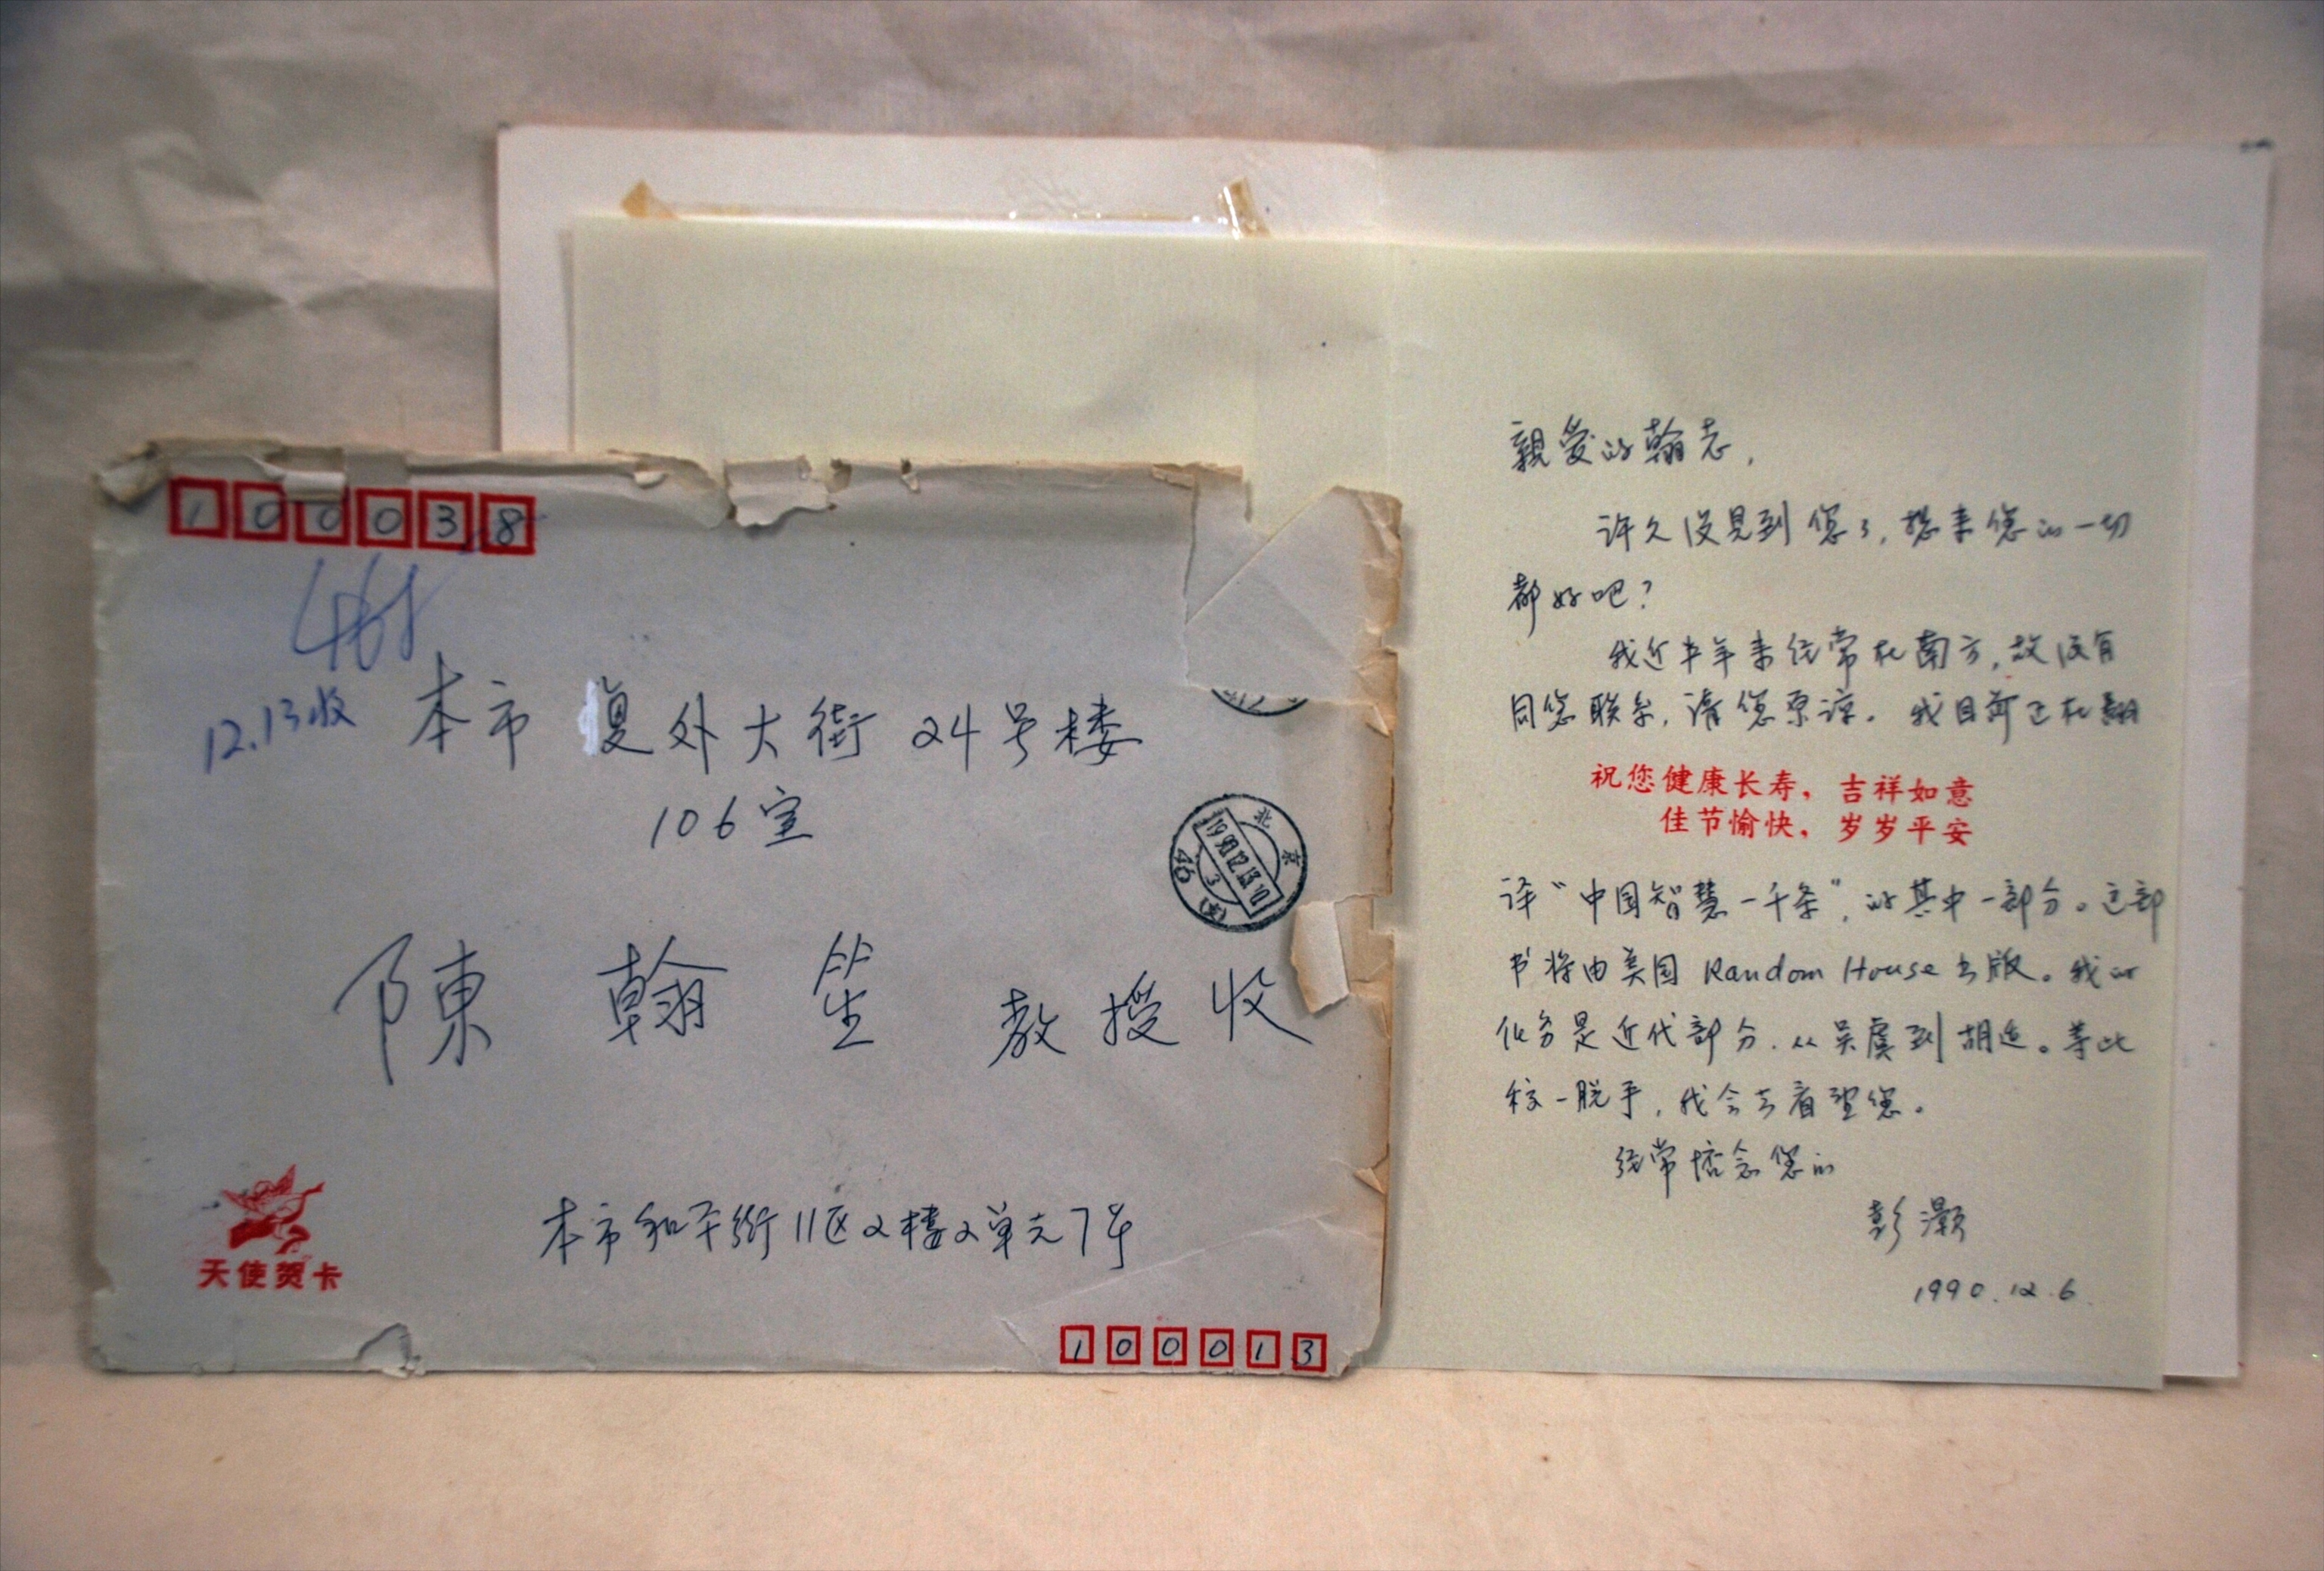 100038
12.13收
本市 復外大街 24号楼
106室
陳 翰 笙 教授收
北京
1990.12.13.10
3
46
(支)
天使贺卡
本市和平街11区2楼2单元7号
100013
親爱的翰志,
许久没見到您了,想来您的一切
都好吧?
我近半年来经常在南方,故没有
同您联系,请您原谅。我目前正在翻
祝您健康长寿,吉祥如意
佳节愉快,岁岁平安
译“中国智慧一千条”的其中一部分。这部
书将由美国 Random House 出版。我的
任务是近代部分,从吴虞到胡适。等此
稿一脱手,我会去看望您。
经常惦念您的
彭灏
1990.12.6.